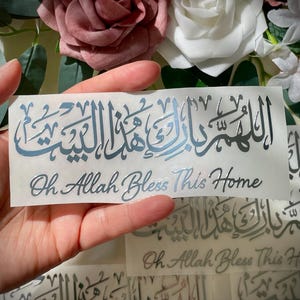 اللهم بارك هذا البيت
Oh Allah Bless This Home
Oh Allah Bless This H